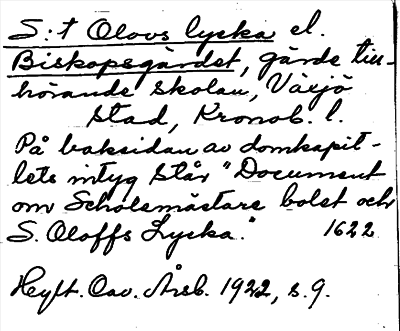 S:t Olovs lycka el.
Biskopsgärdet, gärde till-
hörande skolan, Växjö
stad, Kronob. l.
På baksidan av domkapit-
lets intyg står "Document
om Scholemästare bolet och
S. Oloffs Lycka." 1622
Heyft. Cav. Årsb. 1922, s. 9.